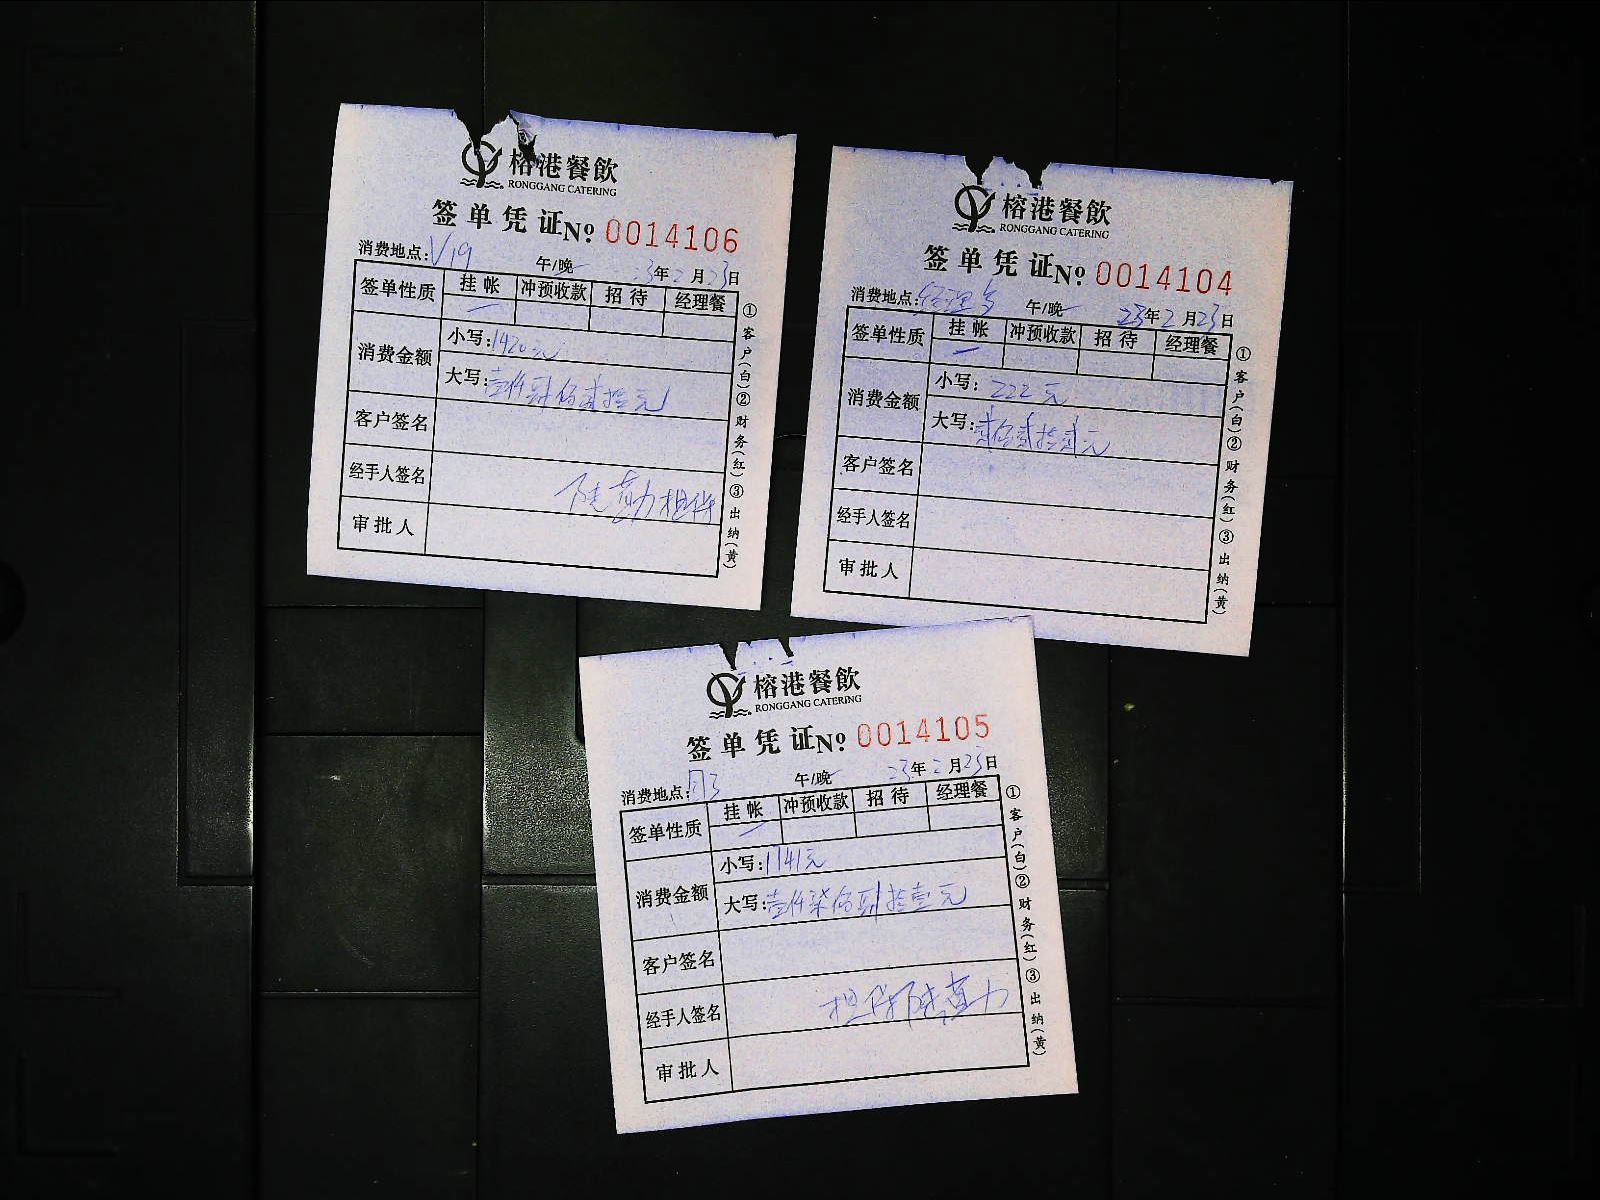 榕港餐飲
RONGGANG CATERING
签单凭证 Nº 0014106
消费地点: V19 午/晚 23年2月23日
签单性质 挂帐 冲预收款 招待 经理餐
消费金额 小写: 1420元
大写: 壹仟肆佰贰拾元
客户签名
经手人签名
审批人
①客户(白)②财务(红)③出纳(黄)
榕港餐飲
RONGGANG CATERING
签单凭证 Nº 0014104
消费地点: 经理 午/晚 23年2月23日
签单性质 挂帐 冲预收款 招待 经理餐
消费金额 小写: 222元
大写: 贰佰贰拾贰元
客户签名
经手人签名
审批人
①客户(白)②财务(红)③出纳(黄)
榕港餐飲
RONGGANG CATERING
签单凭证 Nº 0014105
消费地点: 午/晚 23年2月23日
签单性质 挂帐 冲预收款 招待 经理餐
消费金额 小写: 1741元
大写: 壹仟柒佰肆拾壹元
客户签名
经手人签名 担保
审批人
①客户(白)②财务(红)③出纳(黄)